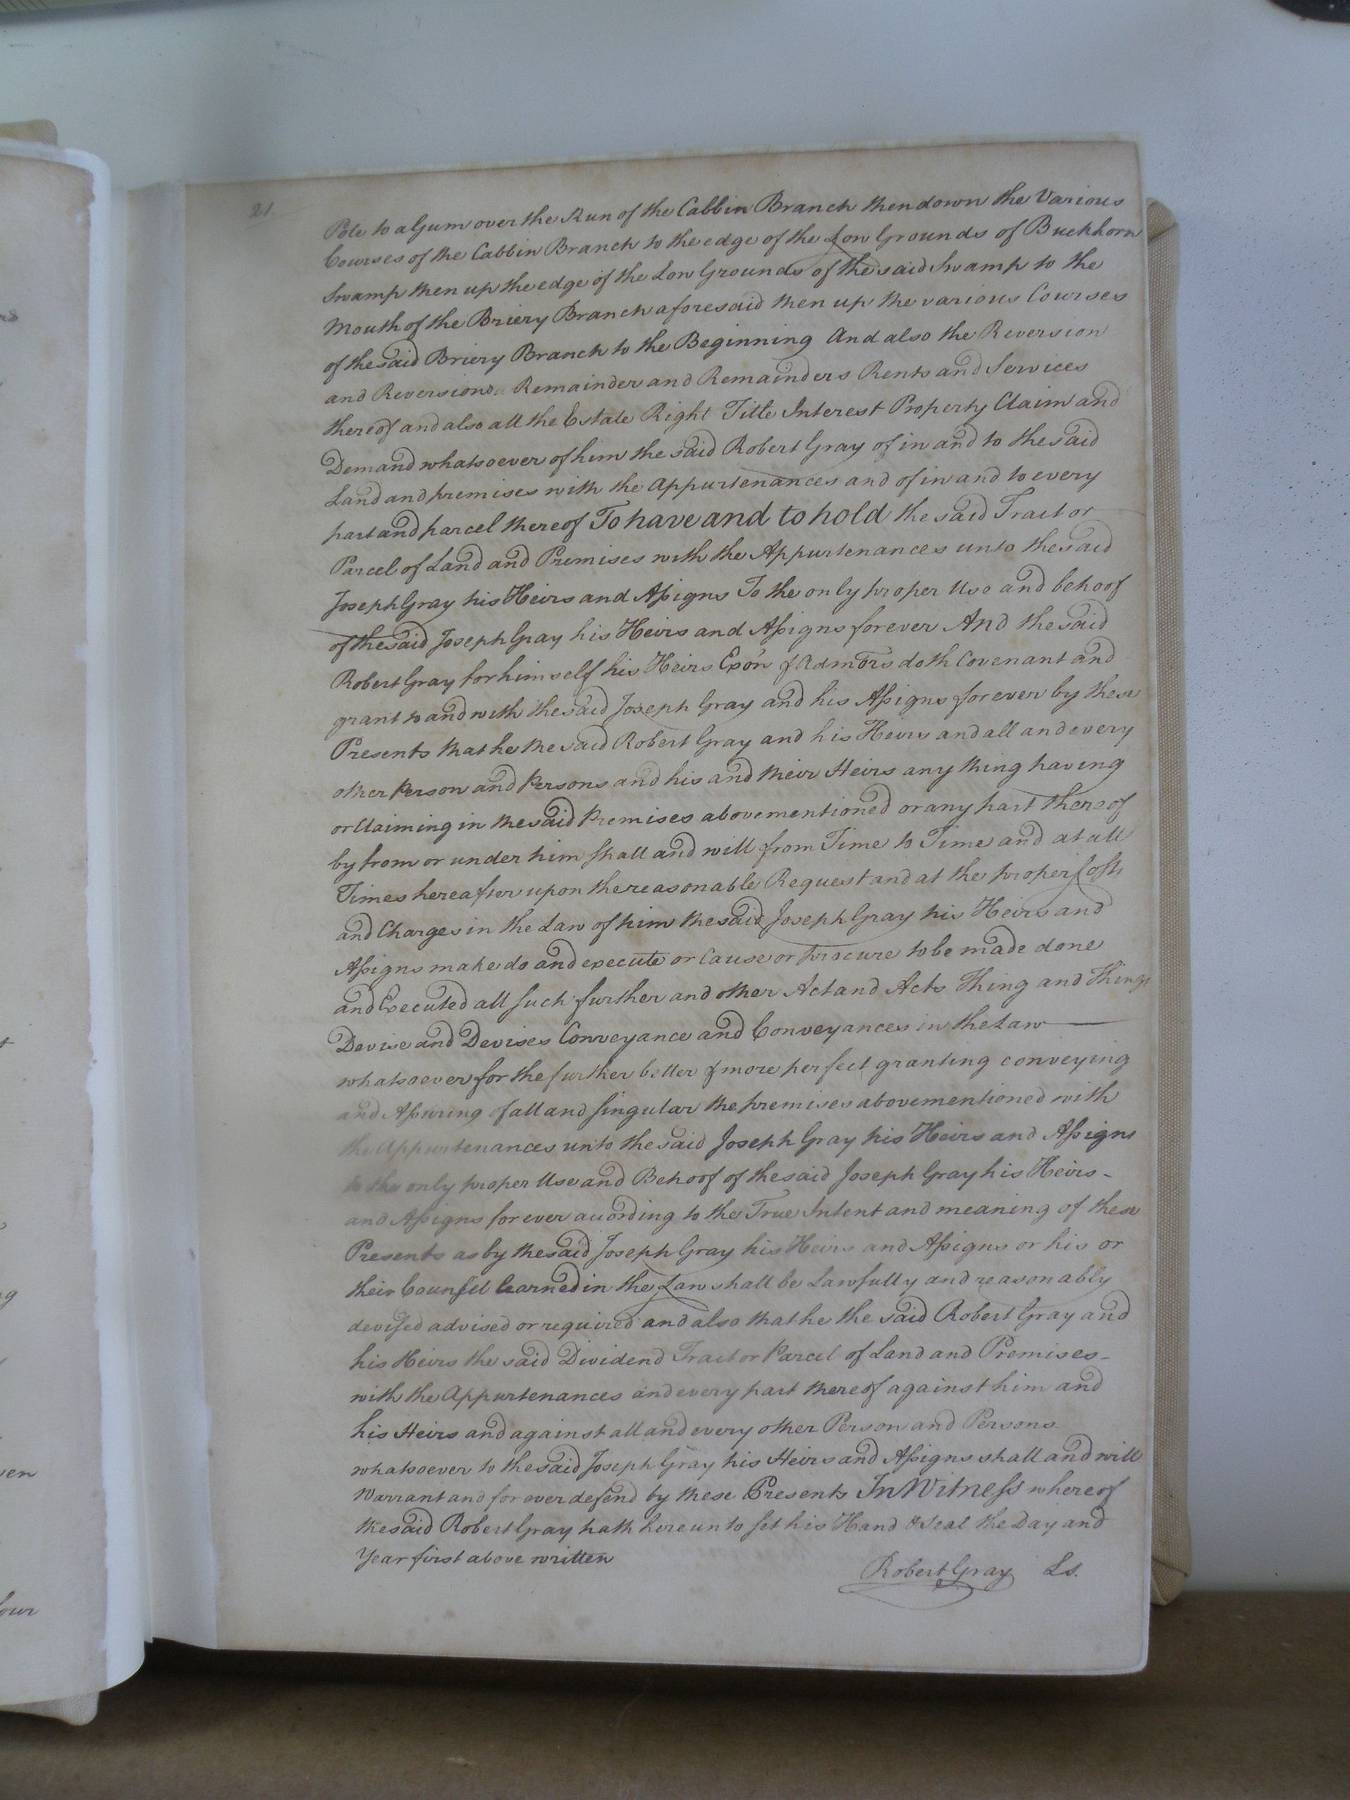 21
Pole to a Gum over the Run of the Cabbin Branch then down the Various
Courses of the Cabbin Branch to the edge of the Low Grounds of Buckhorn
Swamp then up the edge of the Low Grounds of the said Swamp to the
Mouth of the Briery Branch aforesaid then up the various Courses
of the said Briery Branch to the Beginning And also the Reversion
and Reversions Remainder and Remainders Rents and Services
thereof and also all the Estate Right Title Interest Property Claim and
Demand whatsoever of him the said Robert Gray of in and to the said
Land and premises with the Appurtenances and of in and to every
part and parcel thereof To have and to hold the said Tract or
Parcel of Land and Premises with the Appurtenances unto the said
Joseph Gray his Heirs and Assigns To the only proper Use and behoof
of the said Joseph Gray his Heirs and Assigns forever And the said
Robert Gray for himself his Heirs Exōn & Admōrs doth Covenant and
grant to and with the said Joseph Gray and his Assigns forever by these
Presents that he the said Robert Gray and his Heirs and all and every
other Person and Persons and his and their Heirs any thing having
or Claiming in the said Premises abovementioned or any part thereof
by from or under him shall and will from Time to Time and at all
Times hereafter upon the reasonable Request and at the proper Costs
and Charges in the Law of him the said Joseph Gray his Heirs and
Assigns make do and execute or Cause or procure to be made done
and Executed all such further and other Act and Acts Thing and Things
Devise and Devises Conveyance and Conveyances in the Law
whatsoever for the further better & more perfect granting conveying
and Assuring of all and singular the premises abovementioned with
the Appurtenances unto the said Joseph Gray his Heirs and Assigns
to the only proper Use and Behoof of the said Joseph Gray his Heirs
and Assigns forever according to the True Intent and meaning of these
Presents as by the said Joseph Gray his Heirs and Assigns or his or
their Counsel learned in the Law shall be Lawfully and reasonably
devised advised or required and also that he the said Robert Gray and
his Heirs the said Dividend Tract or Parcel of Land and Premises
with the Appurtenances and every part thereof against him and
his Heirs and against all and every other Person and Persons
whatsoever to the said Joseph Gray his Heirs and Assigns shall and will
Warrant and forever defend by these Presents In Witness whereof
the said Robert Gray hath hereunto set his Hand & Seal the Day and
Year first above written
Robert Gray Ls.